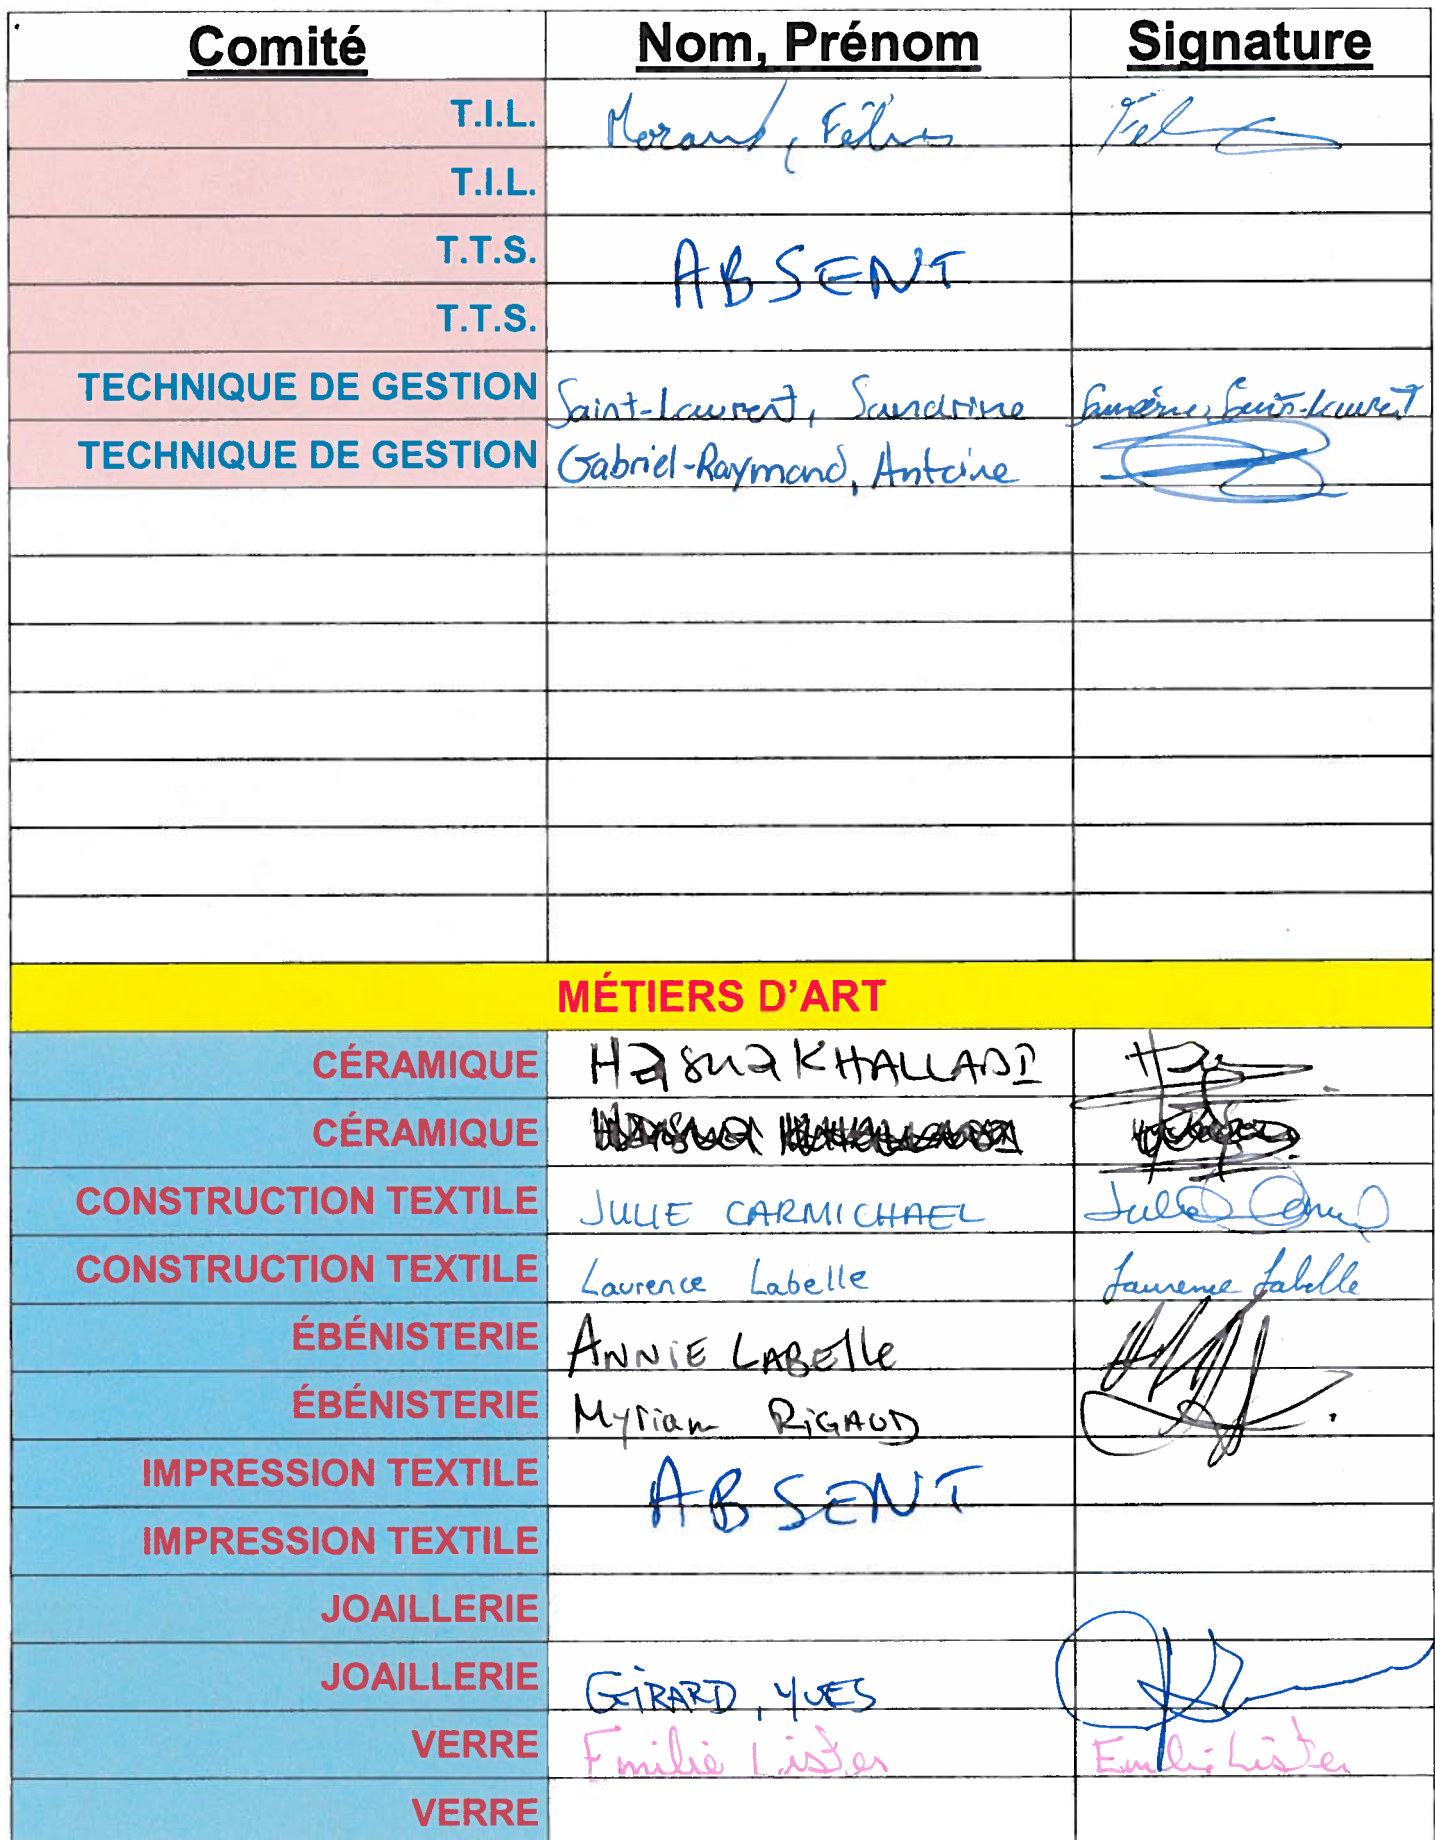 Comité Nom, Prénom Signature
T.I.L. Morand, Félix
T.I.L.
T.T.S. ABSENT
T.T.S.
TECHNIQUE DE GESTION Saint-Laurent, Sandrine Sandrine Saint-Laurent
TECHNIQUE DE GESTION Gabriel-Raymond, Antoine
MÉTIERS D'ART
CÉRAMIQUE Hasna KHALLADI
CÉRAMIQUE
CONSTRUCTION TEXTILE JULIE CARMICHAEL
CONSTRUCTION TEXTILE Laurence Labelle Laurence Labelle
ÉBÉNISTERIE ANNIE LABElle
ÉBÉNISTERIE Myriam RiGAUD
IMPRESSION TEXTILE ABSENT
IMPRESSION TEXTILE
JOAILLERIE
JOAILLERIE GiRARD, YVES
VERRE Emilie Lister Emilie Lister
VERRE